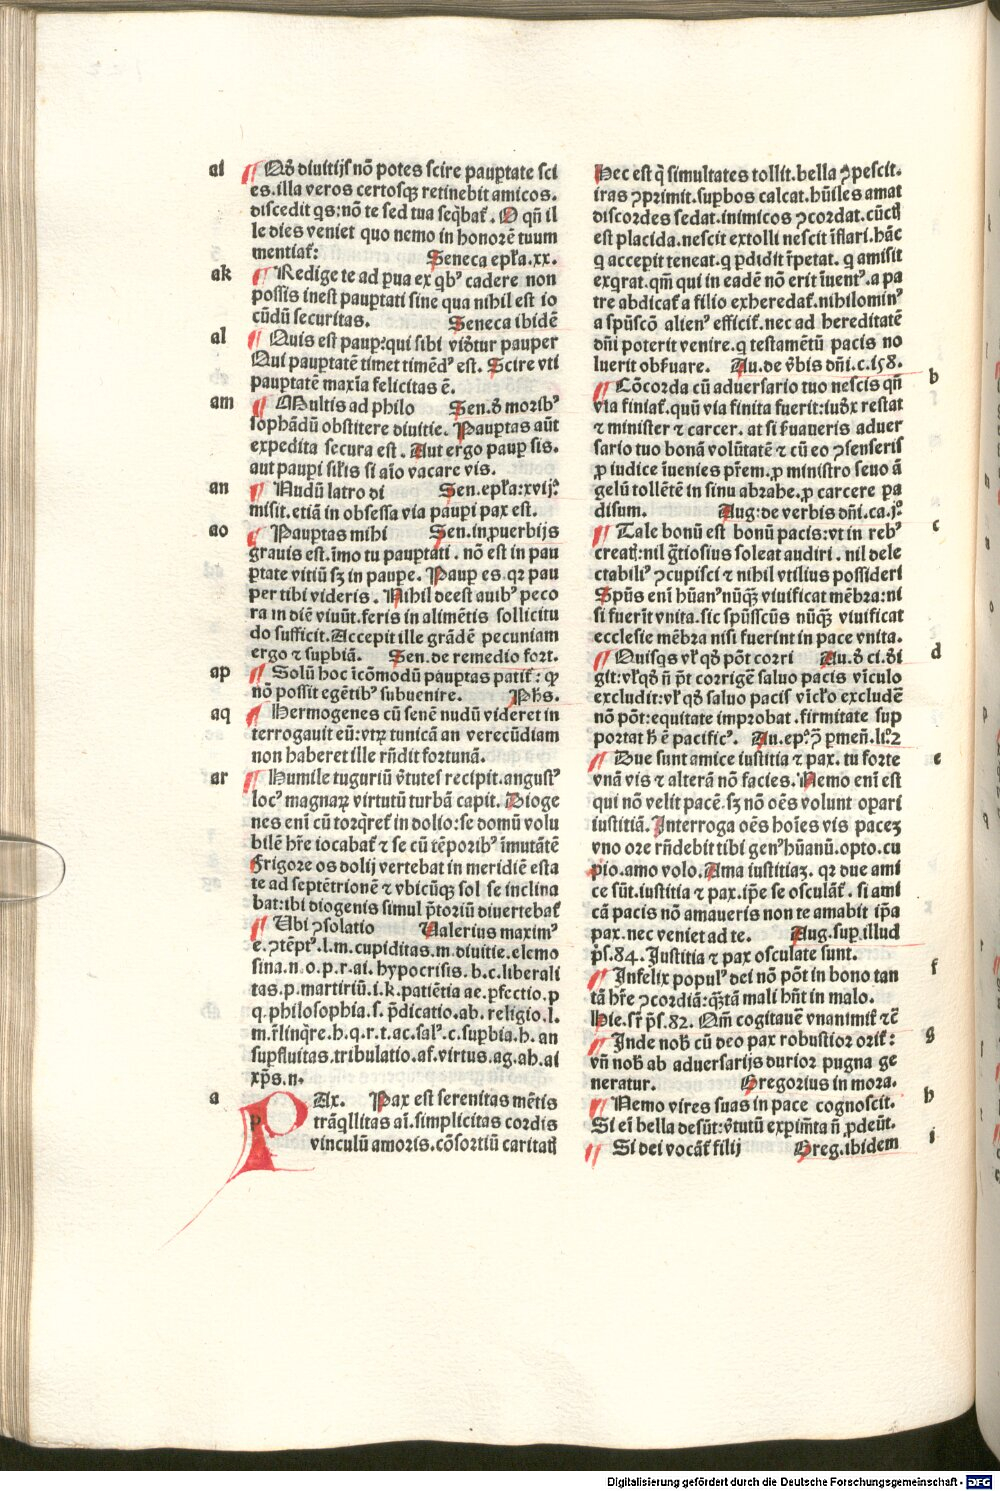 ai
Qđ diuitijs nō potes scire paup̱tate sci
es. illa veros certosqʒ retinebit amicos.
discedit qs: nō te sed tua seq̄bat᷑. O qn̄ il
le dies veniet quo nemo in honorē tuum
mentiat᷑: Seneca epl̄a. xx.
ak
Redige te ad p̱ua ex qbꝰ cadere non
possis inest paup̱tati sine qua nihil est io
cūdū securitas. Seneca ibidē
al
Quis est paup̱: qui sibi vid̄tur pauper
Qui paup̱tatē timet timēdꝰ est. Scire vti
paup̱tatē maxīa felicitas ē.
am
Multis ad philo Sen. đ moribꝰ
sophādū obstitere diuitie. Paup̱tas aūt
expedita secura est. Aut ergo paup̱ sis.
aut paup̱i sil̄is si aīo vacare vis.
an
Nudū latro di Sen. epl̄a: xvij⁰
misit. etiā in obsessa via paup̱i pax est.
ao
Paup̱tas mihi Sen. in ꝓuerbijs
grauis est. īmo tu paup̱tati. nō est in pau
p̱tate vitiū sʒ in paupe. Paup̱ es qꝛ pau
per tibi videris. Nihil deest auibꝰ peco
ra in diē viuūt. feris in alimētis sollicitu
do sufficit. Accepit ille grādē pecuniam
ergo ⁊ sup̱biā. Sen. de remedio fort.
ap
Solū hoc īcōmodū paup̱tas patit᷑: qꝫ
nō possit egētibꝰ subuenire. Phs.
aq
Hermogenes cū senē nudū videret in
terrogauit eū: vtꝝ tunicā an verecūdiam
non haberet ille rn̄dit fortunā.
ar
Humile tuguriū v̄tutes recipit. angustꝰ
locꝰ magnaꝝ virtutū turbā capit. Dioge
nes enī cū torqret᷑ in dolio: se domū volu
bilē hr̄e iocabat᷑ ⁊ se cū tēporibꝰ īmutātē
Frigore os dolij vertebat in meridiē esta
te ad septētrionē ⁊ vbicūqꝫ sol se inclina
bat: ibi diogenis simul p̄toriū diuertebat᷑
Ubi ꝯsolatio Valerius maximꝰ
e. ꝯtēptꝰ. l. m. cupiditas. m. diuitie. elemo
sina. n. o. p. r. ai. hypocrisis. b. c. liberali
tas. p. martiriū. i. k. patiētia ae. p̱fectio. p
q. philosophia. s. p̄dicatio. ab. religio. l.
m. r̄linq̄re. h. q. r. t. ac. salꝰ. c. sup̱bia. h. an
sup̱fluitas. tribulatio. af. virtus. ag. ah. ai
xp̄s. n.
a
p
PAx. Pax est serenitas mētis
trāqllitas aī. simplicitas cordis
vinculū amoris. cōsortiū caritatꝭ
Hec est q̄ simultates tollit. bella ꝯpescit.
iras ꝯprimit. sup̱bos calcat. hūiles amat
discordes sedat. inimicos ꝯcordat. cūctꝭ
est placida. nescit extolli nescit īflari. hāc
q accepit teneat. q p̱didit r̄petat. q amisit
exqrat. qm̄ qui in eadē nō erit īuentꝰ. a pa
tre abdicat᷑ a filio exheredat᷑. nihilominꝰ
a sp̄ūscō alienꝰ efficit᷑. nec ad hereditatē
dn̄i poterit venire. q testamētū pacis no
luerit obẜuare. Au. de v̄bis dn̄i. c. 158.
b
Cōcorda cū aduersario tuo nescis qn̄
via finiat᷑. quū via finita fuerit: iudx restat
⁊ minister ⁊ carcer. at si ẜuaueris aduer
sario tuo bonā volūtatē ⁊ cū eo ꝯsenseris
ꝓ iudice īuenies pr̄em. ꝓ ministro seuo ā
gelū tollētē in sinu abrahe. ꝓ carcere pa
disum. Aug: de verbis dn̄i. ca. j⁰
c
Tale bonū est bonū pacis: vt in rebꝰ
creatꝭ: nil gr̄iosius soleat audiri. nil dele
ctabiliꝰ ꝯcupisci ⁊ nihil vtilius possideri
Spūs enī hūanꝰ nūqꝫ viuificat mēbra: ni
si fuerit vnita. sic sp̄ūsscūs nūqꝫ viuificat
ecclesie mēbra nisi fuerint in pace vnita.
d
Quisqs vl̄ qđ pōt corri Au. đ ci. đi
git: vl̄ qđ n̄ pōt corrigē saluo pacis vīculo
excludit: vl̄ qđ saluo pacis vīcl̄o excludē
nō pōt: equitate improbat. firmitate sup
portat h̄ ē pacificꝰ. Au. ep̱⁰. ꝯ̄ p̱men̄. li⁰. 2
e
Due sunt amice iustitia ⁊ pax. tu forte
vnā vis ⁊ alterā nō facies. Nemo enī est
qui nō velit pacē. sʒ nō oēs volunt op̱ari
iustitiā. Interroga oēs hoīes vis pacez
vno ore rn̄debit tibi genꝰ hūanū. opto. cu
pio. amo volo. Ama iustitiaz. qꝛ due ami
ce sūt. iustitia ⁊ pax. ip̄e se osculāt᷑. si ami
cā pacis nō amaueris non te amabit ip̄a
pax. nec veniet ad te. Aug. sup̱. illud
ps. 84. Iustitia ⁊ pax osculate sunt.
f
Infelix populꝰ dei nō pōt in bono tan
tā hr̄e ꝯcordiā: qꝫtā mali hn̄t in malo.
Hie. sr̄ ps. 82. Qm̄ cogitauē vnanimit᷑ ⁊ē
g
Inde nob̄ cū deo pax robustior orit᷑:
vn̄ nob̄ ab aduersarijs durior pugna ge
neratur. Gregorius in mora.
h
Nemo vires suas in pace cognoscit.
Si eī bella desūt: v̄tutū exp̱im̄ta n̄ ꝓdeūt.
i
Si dei vocāt᷑ filij Greg. ibidem
Digitalisierung gefördert durch die Deutsche Forschungsgemeinschaft - DFG